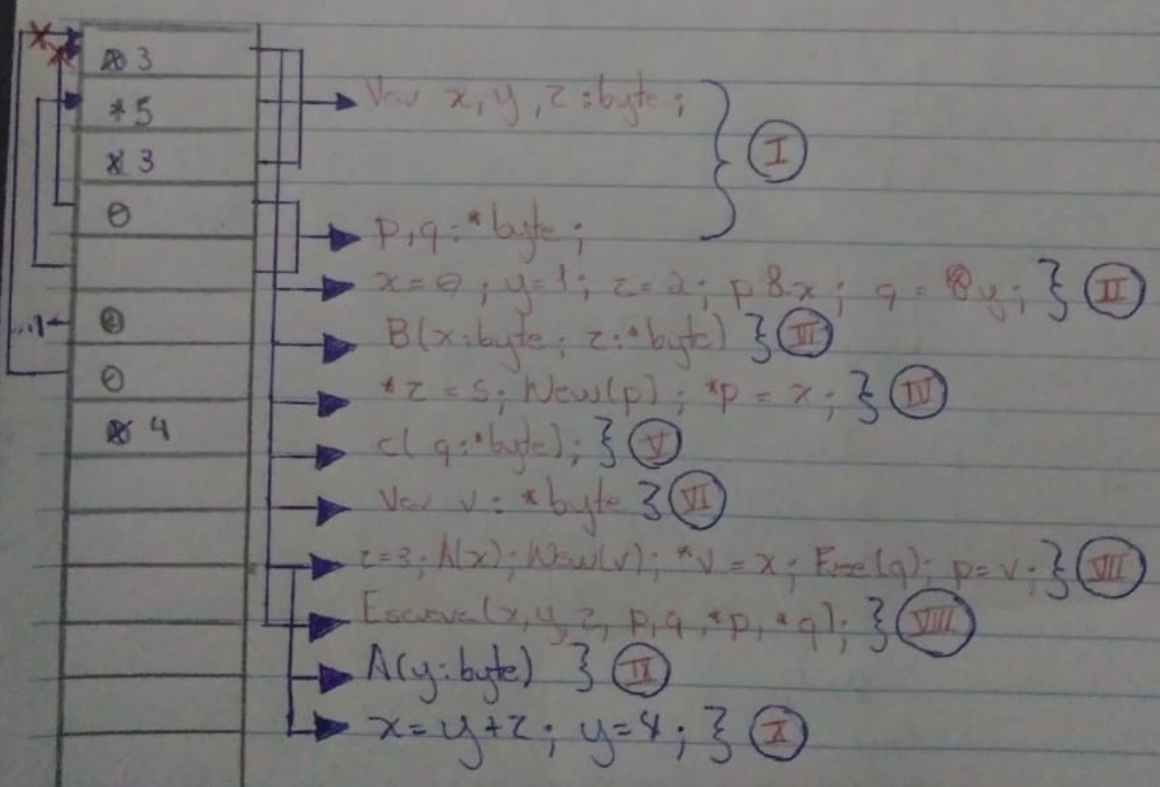 3
*5
3
0
0
0
4
Var x, y, z : byte;
I
p, q : *byte;
x = 0 ; y = 1 ; z = 2 ; p & x ; q = &y ; } II
B(x:byte ; z:*byte) } III
*z = 5; New(p) ; *p = x ; } IV
C( q:*byte); } V
Var v : *byte } VI
z=3; A(x); New(v); *v = x ; Free(q); p = v ; } VII
Escreva(x, y, z, p, q, *p, *q); } VIII
A(y:byte) } IX
x = y+z ; y=4 ; } X